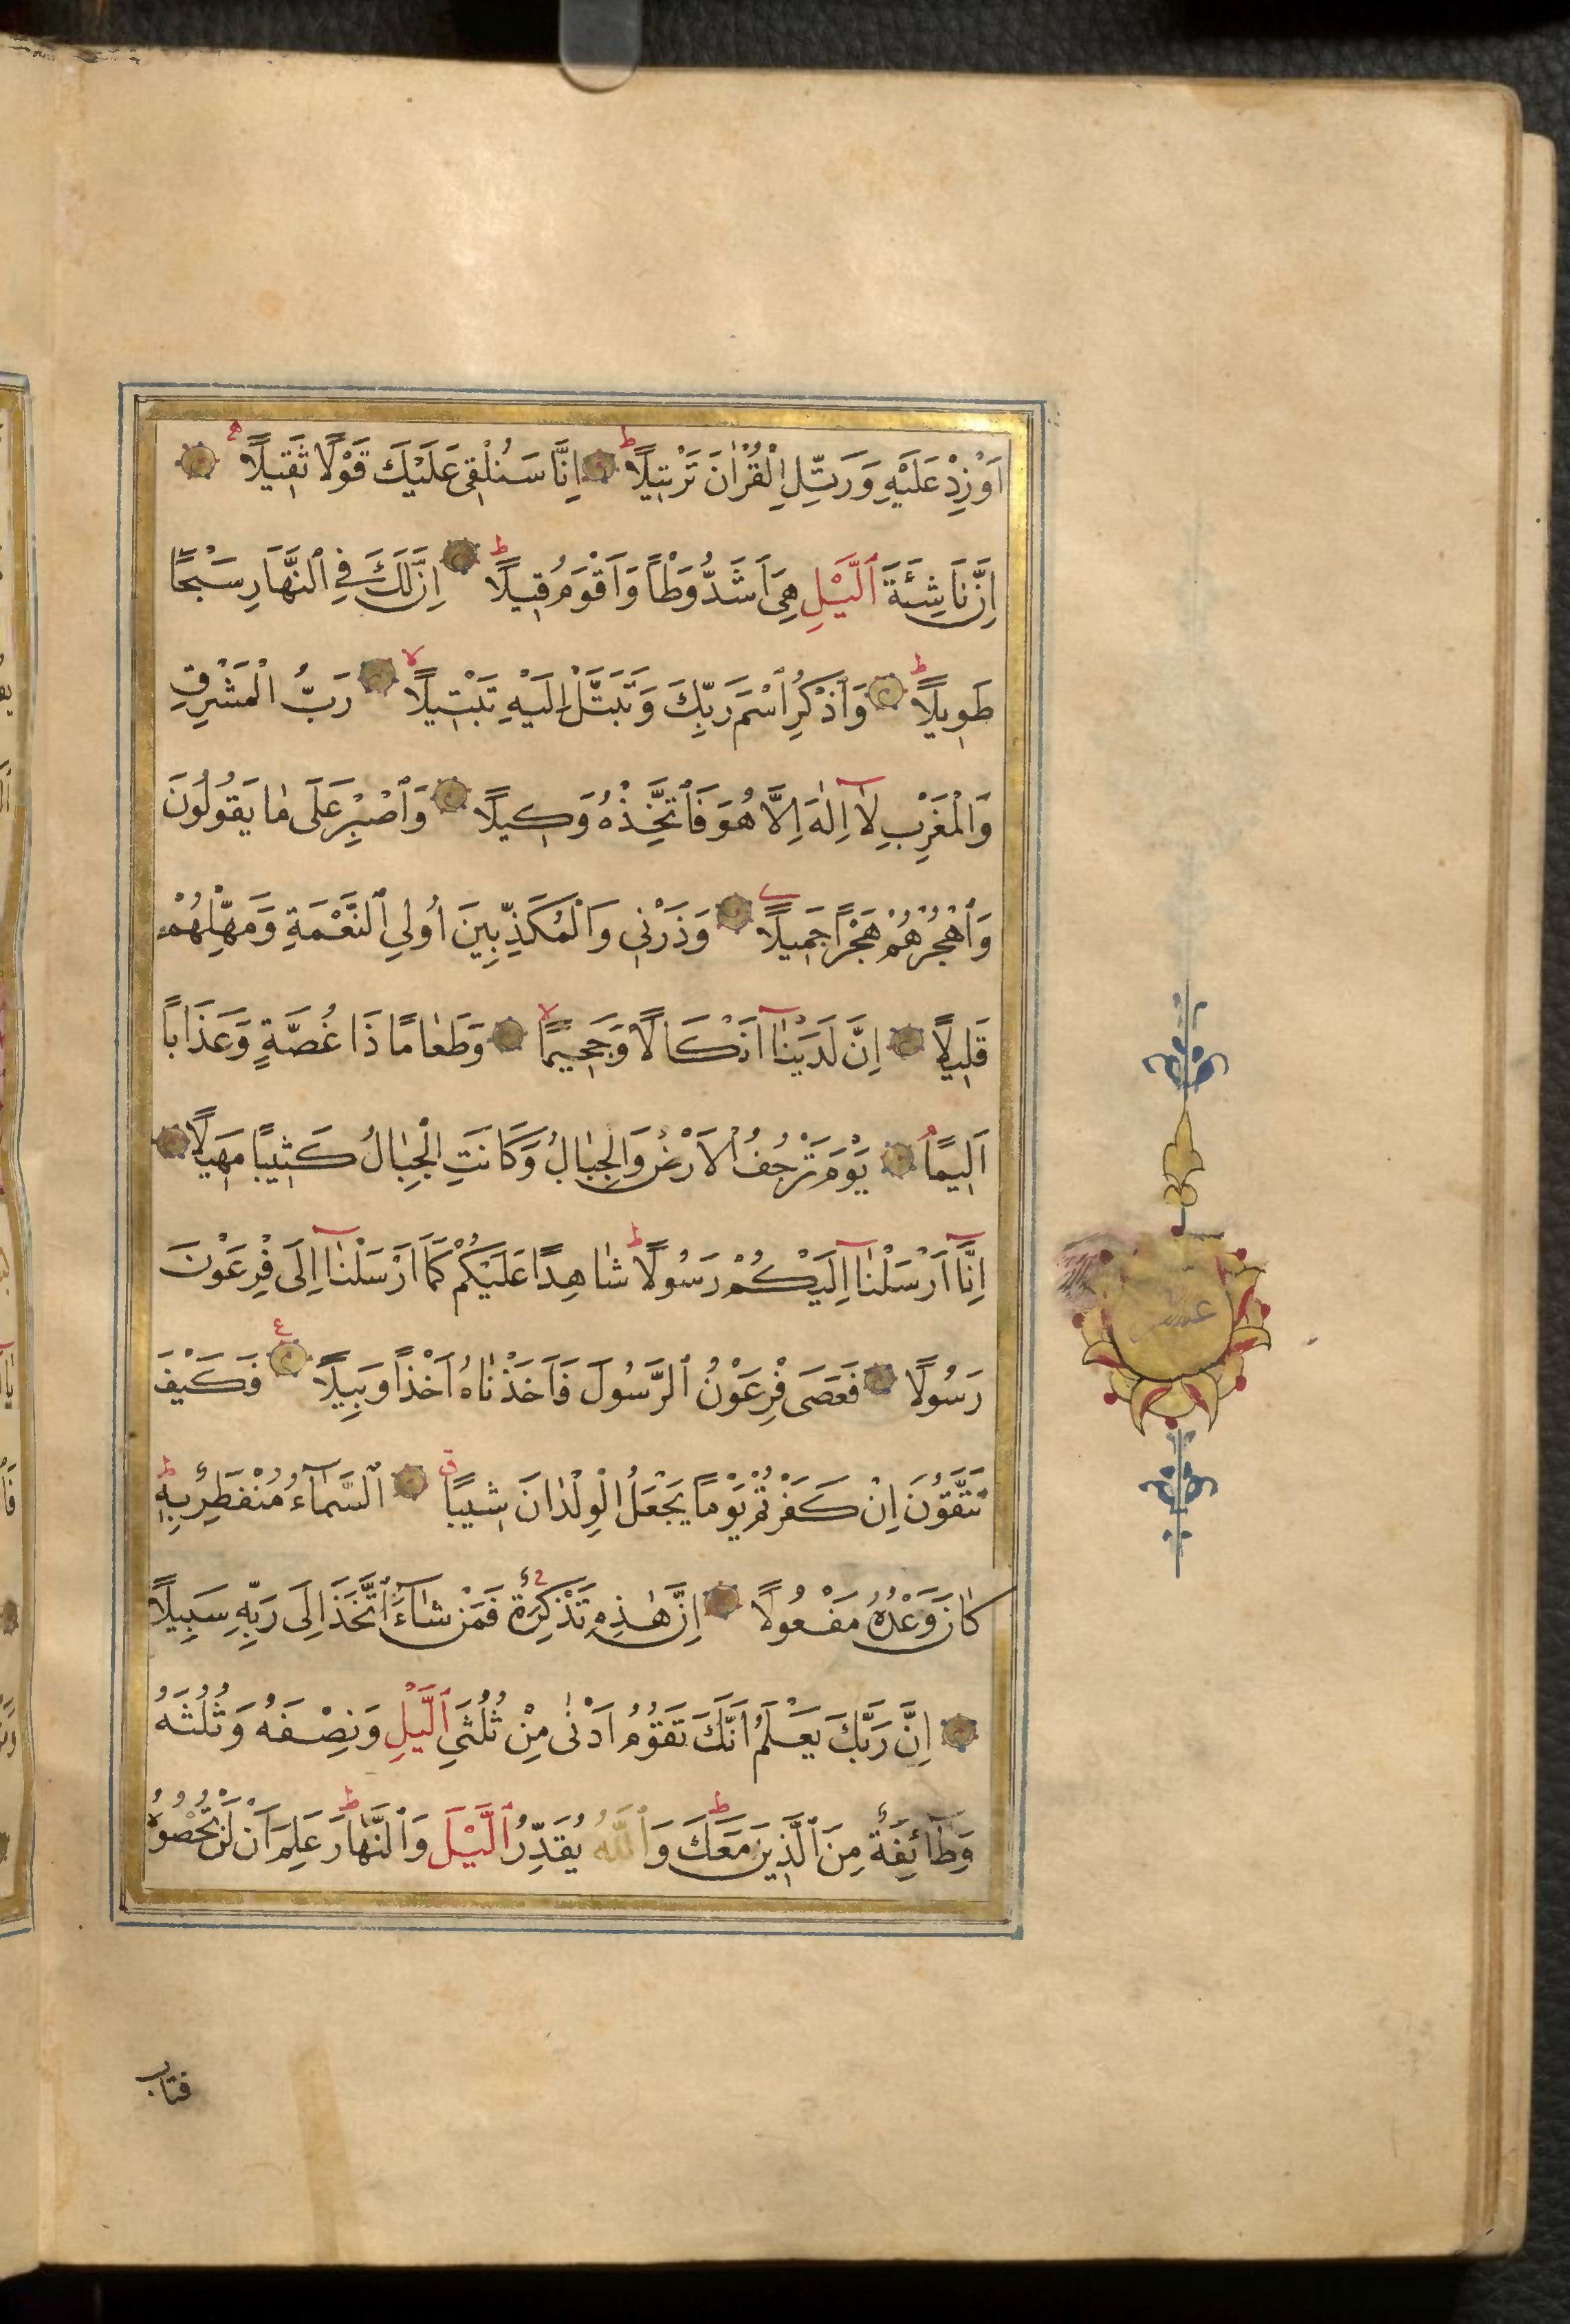 اَوْ زِدْ عَلَيْهِ وَرَتِّلِ الْقُرْاٰنَ تَرْتِيلًا ط اِنَّا سَنُلْقِي عَلَيْكَ قَوْلًا ثَقِيلًا
اِنَّ نَاشِئَةَ ٱلَّيْلِ هِىَ اَشَدُّ وَطْاً وَاَقْوَمُ قِيلًا ط اِنَّ لَكَ فِي ٱلنَّهَارِ سَبْحًا
طَوِيلًا ط وَٱذْكُرِ ٱسْمَ رَبِّكَ وَتَبَتَّلْ اِلَيْهِ تَبْتِيلًا لا رَبُّ الْمَشْرِقِ
وَالْمَغْرِبِ لَا اِلٰهَ اِلَّا هُوَ فَٱتَّخِذْهُ وَكِيلًا وَٱصْبِرْ عَلَى مٰا يَقُولُونَ
وَٱهْجُرْهُمْ هَجْرًا جَمِيلًا وَذَرْنِي وَالْمُكَذِّبِينَ اُولِي ٱلنَّعْمَةِ وَمَهِّلْهُمْ
قَلِيلًا اِنَّ لَدَيْنٰا اَنْكَالًا وَجَحِيمًا لا وَطَعٰامًا ذَا غُصَّةٍ وَعَذَاباً
اَلِيمًا يَوْمَ تَرْجُفُ الْاَرْضُ وَالْجِبٰالُ وَكَانَتِ الْجِبٰالُ كَثِيبًا مَهِيلًا
اِنَّا اَرْسَلْنٰا اِلَيْكُمْ رَسُولًا ط شٰاهِدًا عَلَيْكُمْ كَمَا اَرْسَلْنٰا اِلَى فِرْعَوْنَ
رَسُولًا فَعَصَى فِرْعَوْنُ ٱلرَّسُولَ فَاَخَذْنٰاهُ اَخْذًا وَبِيلًا ع فَكَيْفَ
تَتَّقُونَ اِنْ كَفَرْتُمْ يَوْمًا يَجْعَلُ الْوِلْدٰانَ شِيبًا ق ٱلسَّمٰاءُ مُنْفَطِرٌ بِهِ ط
كٰانَ وَعْدُهُ مَفْعُولًا اِنَّ هٰذِهِ تَذْكِرَةٌ فَمَنْ شٰاءَ ٱتَّخَذَ اِلَى رَبِّهِ سَبِيلًا
اِنَّ رَبَّكَ يَعْلَمُ اَنَّكَ تَقُومُ اَدْنٰى مِنْ ثُلُثَيِ ٱلَّيْلِ وَنِصْفَهُ وَثُلُثَهُ
وَطَائِفَةٌ مِنَ ٱلَّذِينَ مَعَكَ ط وَٱللّٰهُ يُقَدِّرُ ٱلَّيْلَ وَٱلنَّهٰارَ ط عَلِمَ اَنْ لَنْ تُحْصُوهُ
فتاب
عشر